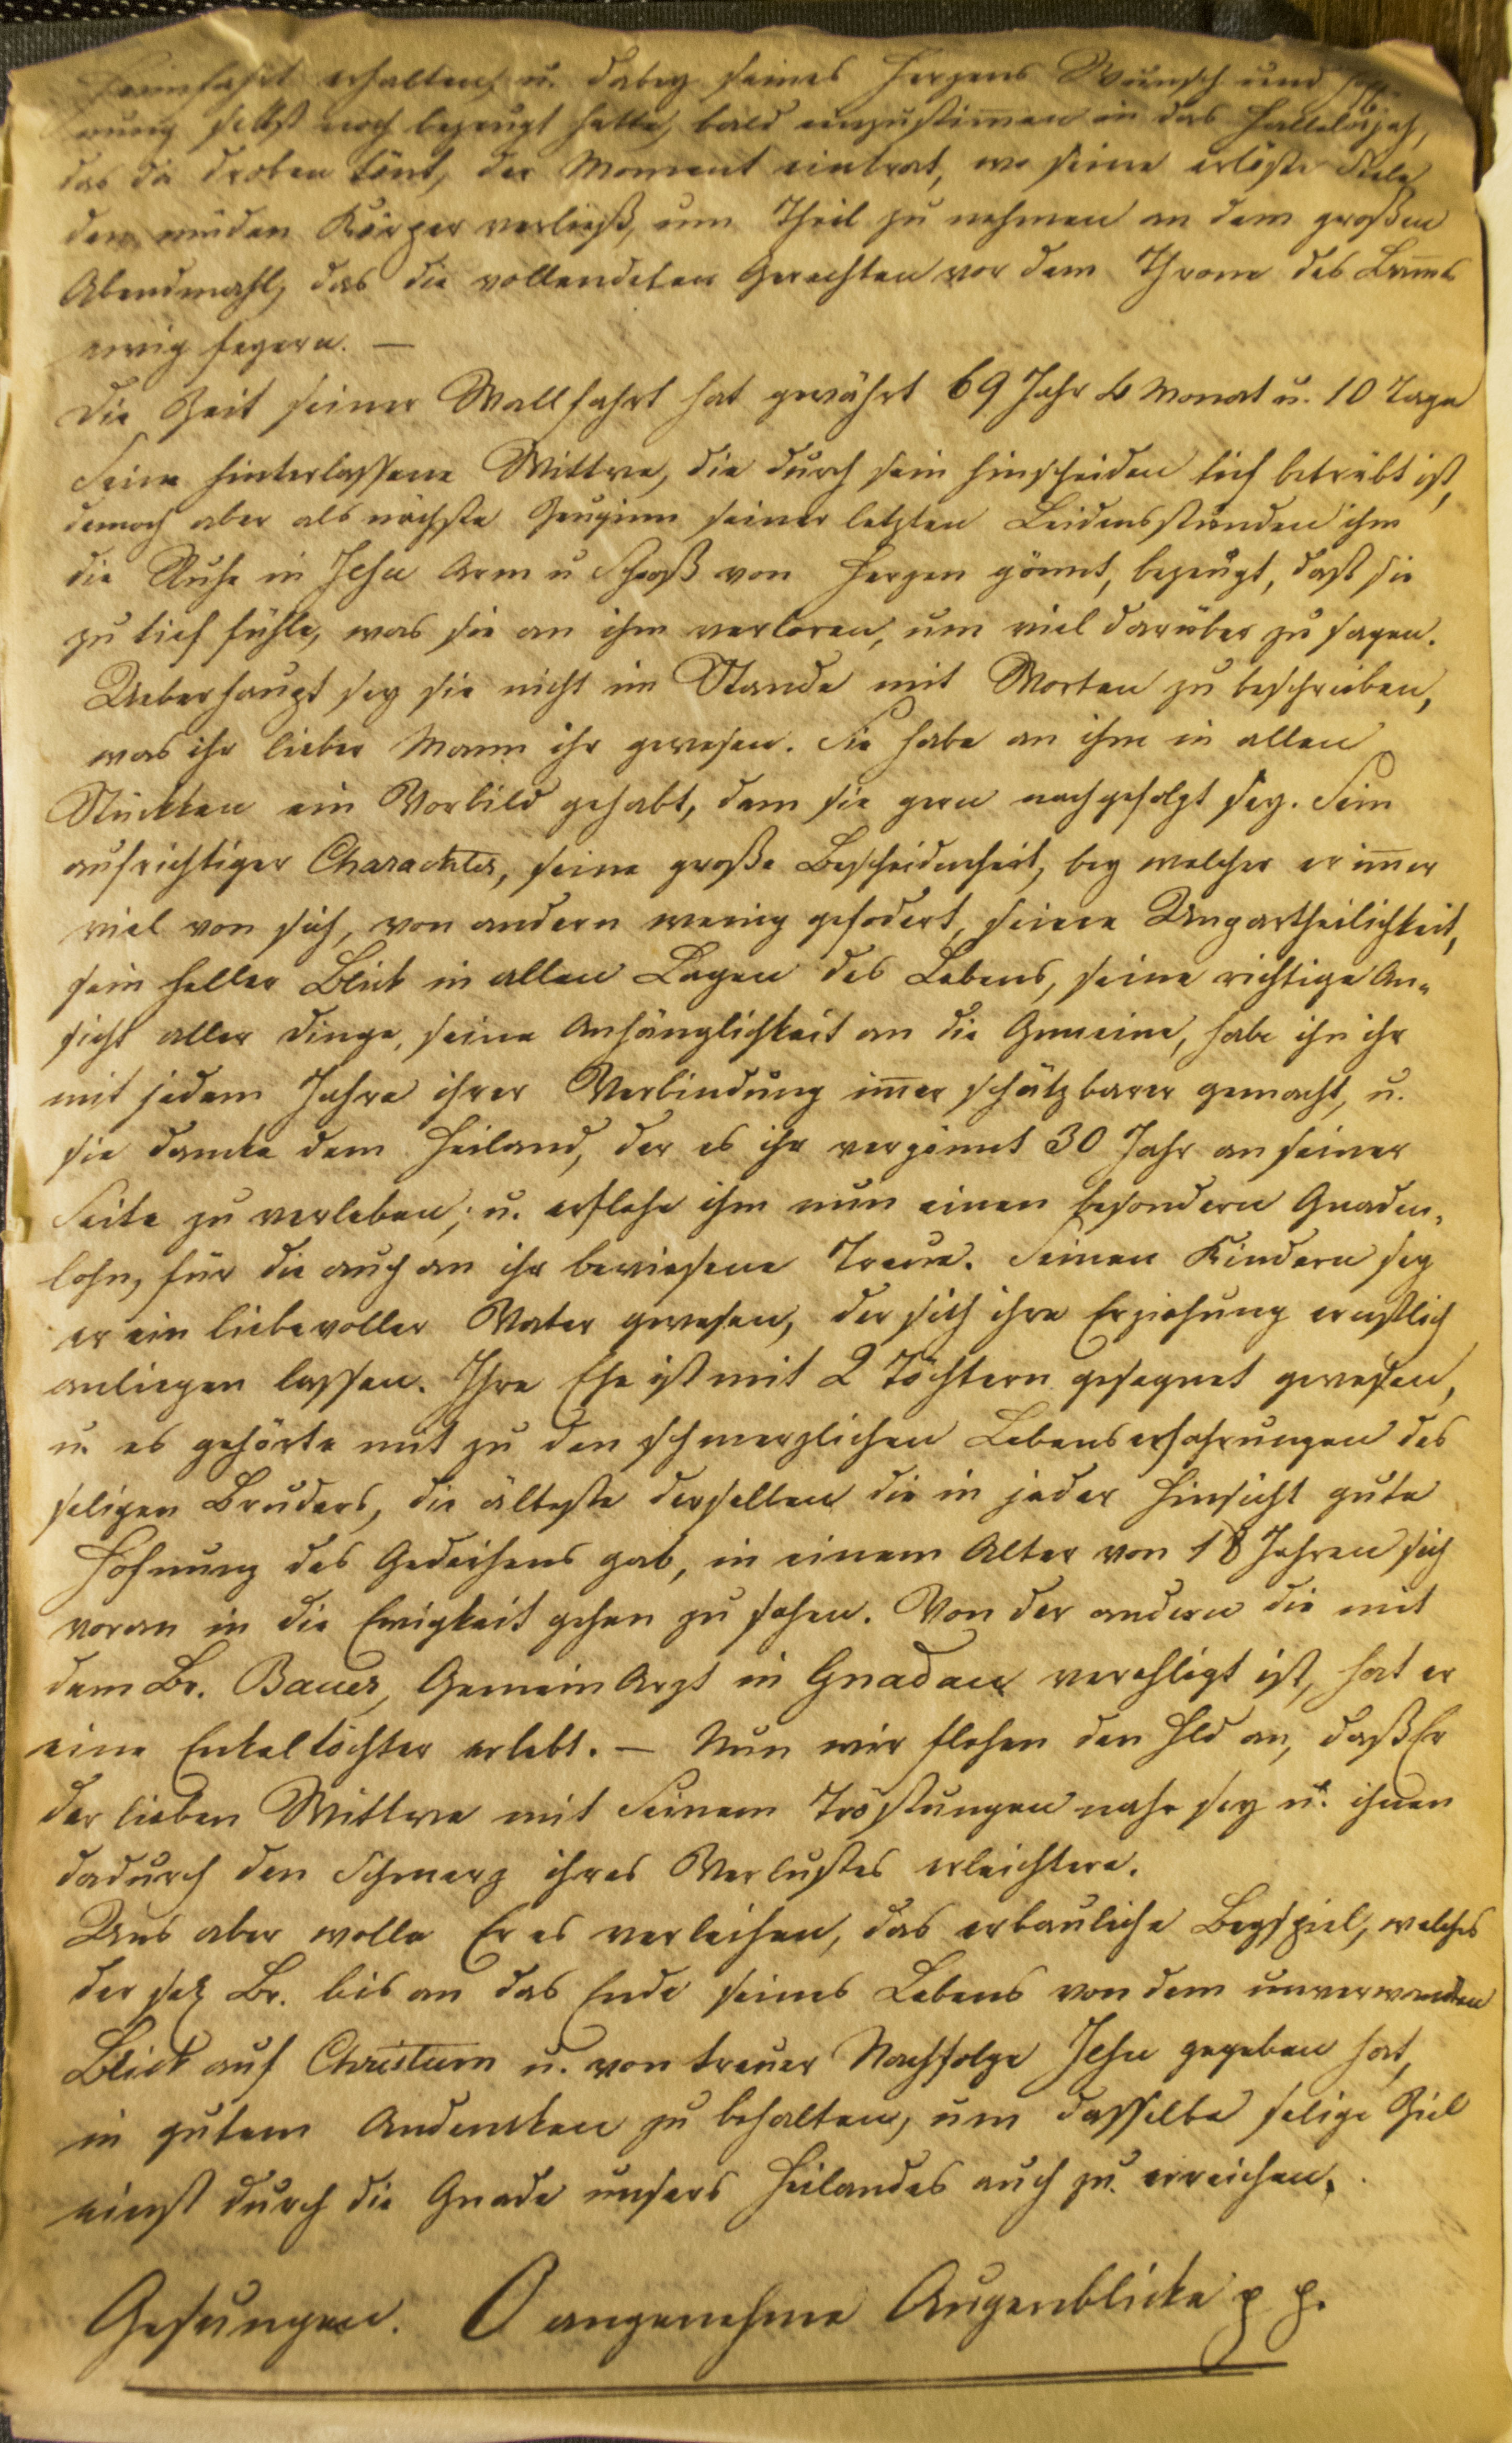 Heimfahrt erhalten, u. dabey seines Herzens Wunsch und Hoff-
nung selbst noch bezeugt hatte, bald einzustim̄en in das Hallelujah,
das da droben tönt, der Moment eintrat, wo seine erlöste Seele
den müden Körper verließ, um Theil zu nehmen an dem großen
Abendmahl, das die vollendeten Gerechten vor dem Throne des Lam̄s
ewig feyern. —
Die Zeit seiner Wallfahrt hat gewährt 69 Jahr Monat u. 10 Tage
Seine hinterlassene Wittwe, die durch sein Hinscheiden tief betrübt ist,
dennoch aber als nächste Zeuginn seiner letzten Leidensstunden ihm
die Ruhe in Jesu Arm u Schooß von Herzen gönnt, bezeugt, daß sie
zu tief fühle, was sie an ihm verloren, um viel darüber zu sagen.
Ueberhaupt sey sie nicht im Stande mit Worten zu beschreiben,
was ihr lieber Mann ihr gewesen. Sie habe an ihm in allen
Stücken ein Vorbild gehabt, dem sie gern nachgefolgt sey. Sein
aufrichtiger Charackter, seine große Bescheidenheit, bey welcher er im̄er
viel von sich, von andern wenig gefodert, seine Unpartheilichkeit,
sein heller Blick in allen Lagen des Lebens, seine richtige An-
sicht aller Dinge, seine Anhänglichkeit an die Gemeine, habe ihn ihr
mit jedem Jahre ihrer Verbindung im̄er schätzbarer gemacht, u.
sie dancke dem Heiland, der es ihr vergönnt 30 Jahr an seiner
Seite zu verleben; u. erflehe ihm nun einen besondern Gnaden-
lohn, für die auch an ihr bewiesene Treue. Seinen Kindern sey
er ein liebevoller Vater gewesen, der sich ihre Erziehung ernstlich
anliegen lassen. Ihre Ehe ist mit 2 Töchtern gesegnet gewesen,
u. es gehörte mit zu den schmerzlichen Lebenserfahrungen des
seligen Bruders, die älteste derselben die in jeder Hinsicht gute
Hofnung des Gedeihens gab, in einem Alter von 18 Jahren sich
voran in die Ewigkeit gehen zu sehen. Von der andern die mit
dem Br. Bauer, Gemein Arzt in Gnadau verehligt ist, hat er
eine Enkeltöchter erlebt. — Nun wir flehen den Hld an, daß Er
der lieben Wittwe mit Seinem Tröstungen nahe sey u. ihnen
dadurch den Schmerz ihres Verlustes erleichtere.
Uns aber wolle Er es verleihen, das erbauliche Beyspiel, welches
der sel Br. bis an das Ende seines Lebens von dem unverwandten
Blick auf Christum u. von treuer Nachfolge Jesu gegeben hat,
in gutem Andencken zu behalten, um dasselbe selige Ziel
einst durch die Gnade unsers Heilandes auch zu erreichen.
Gesungen. O angenehme Augenblicke p. p.